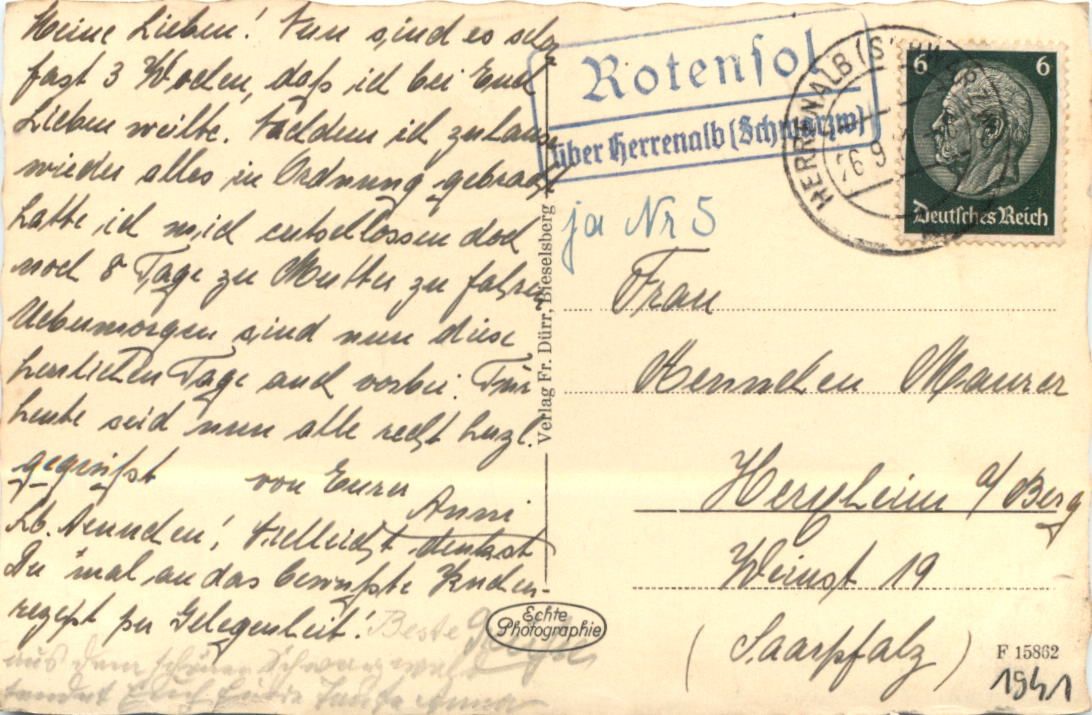 Meine Lieben! Nun sind es schon
fast 3 Wochen, daß ich bei Euch
Lieben weilte. Nachdem ich zu Hause
wieder alles in Ordnung gebracht
hatte ich mich entschlossen doch
noch 8 Tage zu Mutter zu fahren
Uebermorgen sind nun diese
herrlichen Tage auch vorbei. Für
heute seid nun alle recht herzl.
gegrüßt von Eurer
Anni
Lb. Aennchen! Vielleicht denkst
Du 'mal an das bewußte Kuchen-
rezept per Gelegenheit! Beste Grüße
aus dem schönen Schwarzwald
sendet Euch Tante Anna
Verlag Fr. Dürr, Bieselsberg
Echte
Photographie
Rotensol
über Herrenalb (Schwarzw)
HERRENALB (SCHWARZW
26 9
6 6
Deutsches Reich
ja Nr 5
Frau
Aennchen Maurer
Herxheim a/Berg
Weinst 19
(Saarpfalz)
F 15862
1941